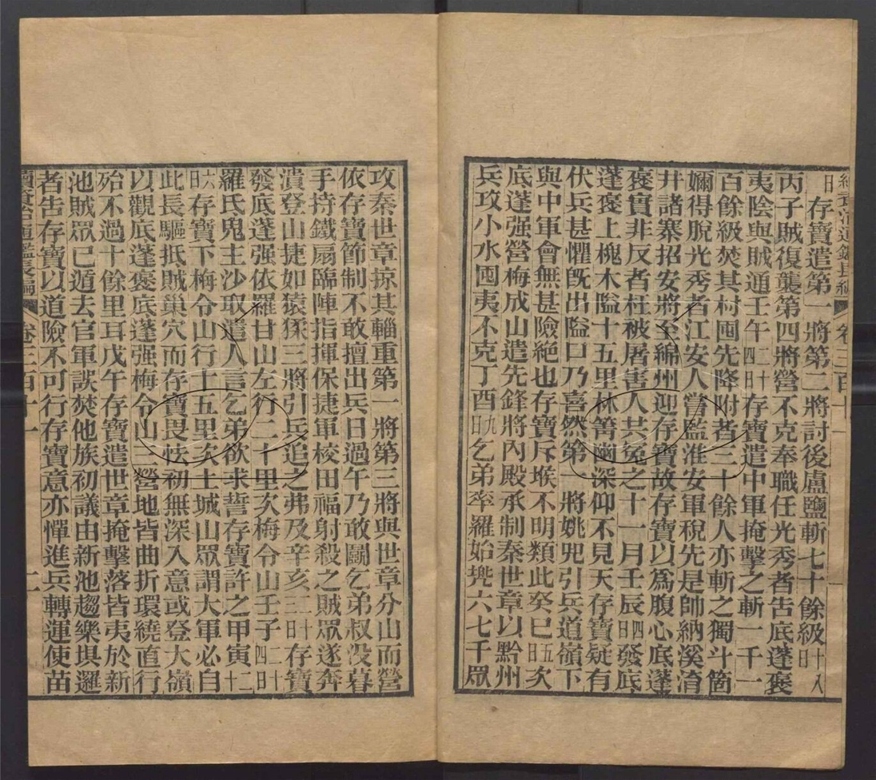 續資治通鑑長編 卷三百十一
日存寶遣第一將第二將討後盧鹽斬七十餘級十八日
丙子賊復襲第四將營不克奉職任光秀者告底蓬褒
夷陰與賊通壬午二十四日存寶遣中軍掩擊之斬一千一
百餘級焚其村囤先降附者三十餘人亦斬之獨斗箇
嬭得脫光秀者江安人嘗監淮安軍稅先是師納溪淯
井諸寨招安將至綿州迎存寶故存寶以為腹心底蓬
褒實非反者枉被屠害人共冤之十一月壬辰四日發底
蓬褒上槐木隘十五里林箐幽深仰不見天存寶疑有
伏兵甚懼旣出隘口乃喜然第一將姚兕引兵道嶺下
與中軍會無甚險絶也存寶斥堠不明類此癸巳五日次
底蓬强營梅成山遣先鋒將內殿承制秦世章以黔州
兵攻小水囤夷不克丁酉九日乞弟率羅始㲲六七千眾
攻秦世章掠其輜重第一將第三將與世章分山而營
依存寶節制不敢擅出兵日過午乃敢鬬乞弟叔沒暮
手持鐵扇臨陣指揮保捷軍校田福射殺之賊眾遂奔
潰登山捷如猿猱三將引兵追之弗及辛亥二十三日存寶
發底蓬强依羅甘山左行二十里次梅令山壬子二十四日
羅氏鬼主沙取遣人言乞弟欲求誓存寶許之甲寅二十六日
存寶下梅令山行十五里次土城山眾謂大軍必自
此長驅抵賊巢穴而存寶畏怯初無深入意或登大嶺
以觀底蓬褒底蓬强梅令山三營地皆曲折環繞直行
殆不過十餘里耳戊午存寶遣世章掩擊落皆夷於新
池賊眾已遁去官軍誤焚他族初議由新池趨樂垻邏
者告存寶以道險不可行存寶意亦憚進兵轉運使苗
續資治通鑑長編 卷三百十一 二